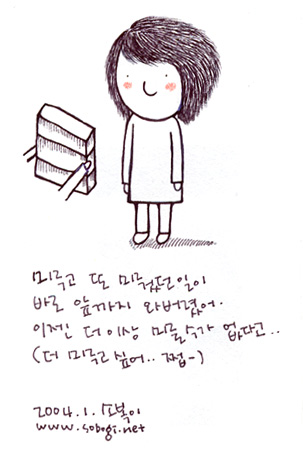 미루고 또 미뤘던 일이
바로 앞까지 와버렸어.
이제는 더이상 미룰수가 없다고..
(더 미루고 싶어.. 쩝-)
2004.1. 소복이
www.sobogi.net